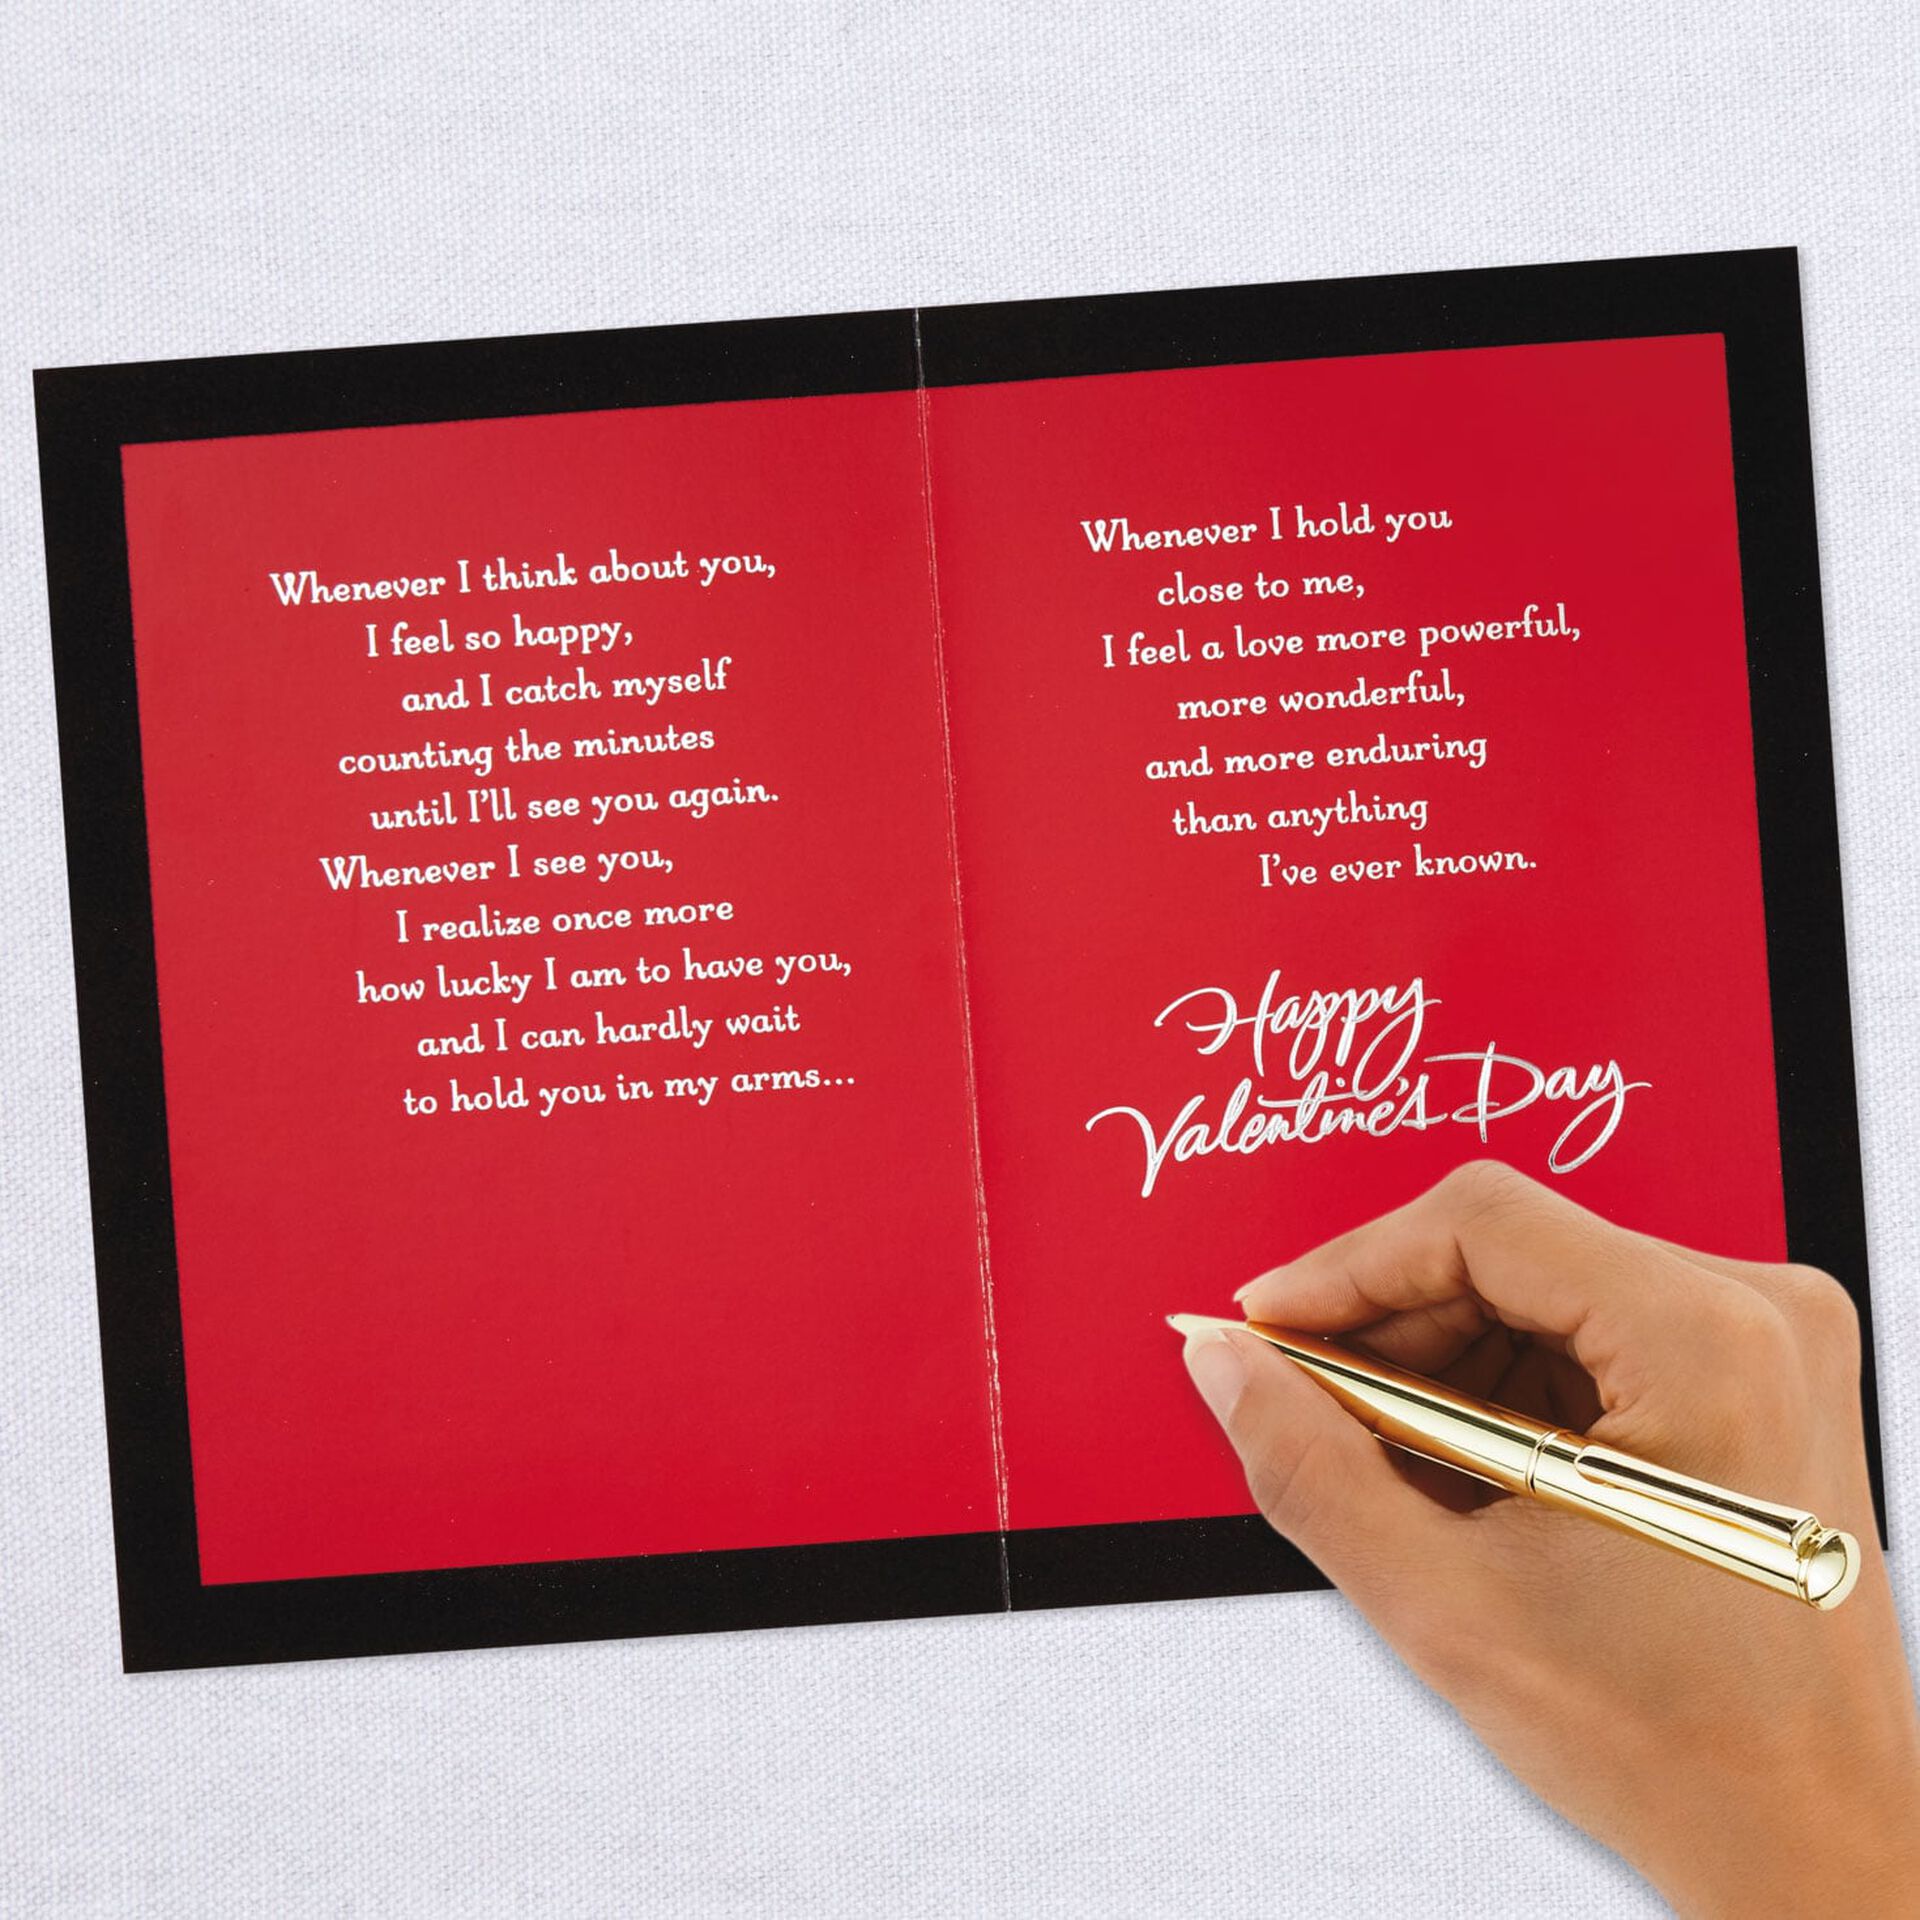 Whenever I think about you,
I feel so happy,
and I catch myself
counting the minutes
until I'll see you again.
Whenever I see you,
I realize once more
how lucky I am to have you,
and I can hardly wait
to hold you in my arms...
Whenever I hold you
close to me,
I feel a love more powerful,
more wonderful,
and more enduring
than anything
I've ever known.
Happy
Valentine's Day